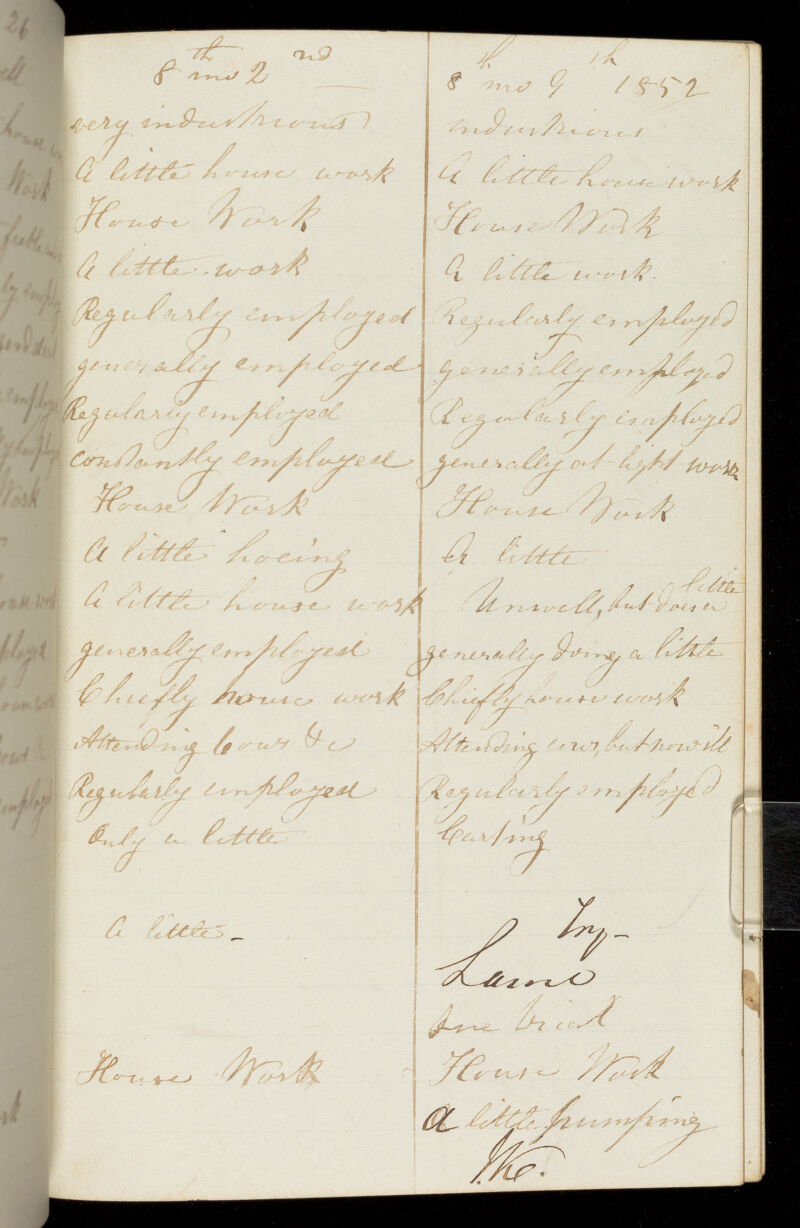 8th mo 2nd
very industrious
A little house work
House Work
A little work
Regularly employed
generally employed
Regularly employed
constantly employed
House Work
A little hoeing
A little house work
generally employed
Chiefly house work
Attending Cows &c
Regularly employed
Only a little
A little -
House Work
8th mo 9th 1852
industrious
A little house work
House Work
A little work.
Regularly employed
generally employed
Regularly employed
generally at light work
House Work
A little
Unwell, but does a little
generally doing a little
Chiefly house work
Attending cows, but now ill
Regularly employed
Carting
Lame
One trial
House Work
a little pumping